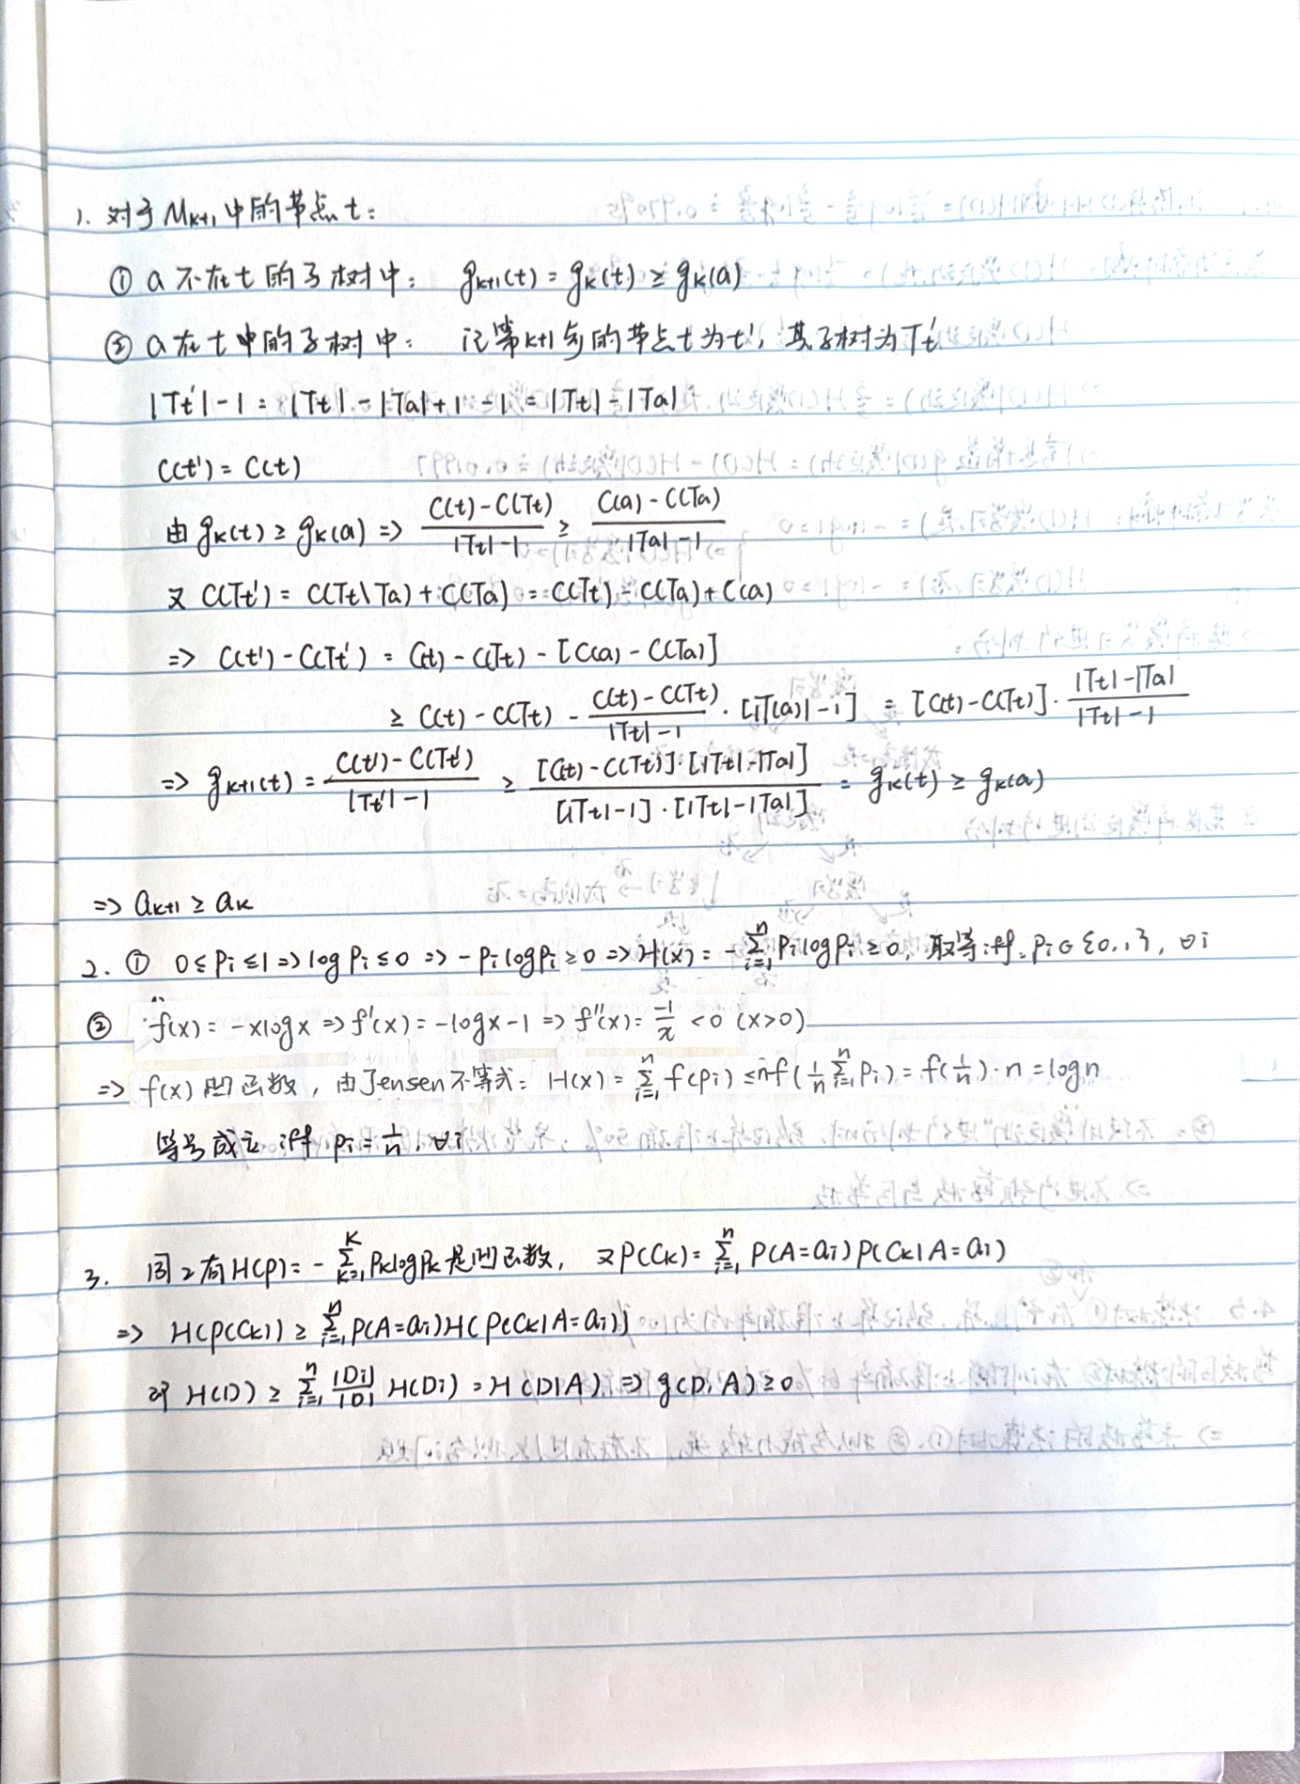 1. 对于 Mk+1 中的节点 t:
① a 不在 t 的子树中: gk+1(t) = gk(t) ≥ gk(a)
② a 在 t 中的子树中: 记第k+1步的节点 t 为 t', 其子树为 Tt'
|Tt'| - 1 = |Tt| - |Ta| + 1 - 1 = |Tt| - |Ta|
C(t') = C(t)
由 gk(t) ≥ gk(a) => (C(t) - C(Tt))/(|Tt| - 1) ≥ (C(a) - C(Ta))/(|Ta| - 1)
又 C(Tt') = C(Tt\Ta) + C(Ta) = C(Tt) - C(Ta) + C(a)
=> C(t') - C(Tt') = C(t) - C(Tt) - [C(a) - C(Ta)]
≥ C(t) - C(Tt) - (C(t) - C(Tt))/(|Tt| - 1) · [|T(a)| - 1] = [C(t) - C(Tt)] · (|Tt| - |Ta|)/(|Tt| - 1)
=> gk+1(t) = (C(t') - C(Tt'))/(|Tt'| - 1) ≥ ([C(t) - C(Tt)]·[|Tt| - |Ta|])/([|Tt| - 1]·[|Tt| - |Ta|]) = gk(t) ≥ gk(a)
=> ak+1 ≥ ak
2. ① 0 ≤ Pi ≤ 1 => log Pi ≤ 0 => -Pi log Pi ≥ 0 => H(x) = -∑_{i=1}^{n} Pi log Pi ≥ 0, 取等 iff. Pi ∈ {0,1}, ∀i
② f(x) = -xlogx => f'(x) = -logx - 1 => f''(x) = -1/x < 0 (x>0)
=> f(x) 凹函数, 由 Jensen 不等式: H(x) = ∑_{i=1}^{n} f(Pi) ≤ nf(1/n ∑_{i=1}^{n} Pi) = f(1/n)·n = logn
等号成立 iff Pi = 1/n, ∀i
3. 同2有 H(p) = -∑_{k=1}^{K} Pk log Pk 是凹函数, 又 P(Ck) = ∑_{i=1}^{n} P(A=ai) P(Ck|A=ai)
=> H(P(Ck)) ≥ ∑_{i=1}^{n} P(A=ai) H(P(Ck|A=ai))
即 H(D) ≥ ∑_{i=1}^{n} |Di|/|D| H(Di) = H(D|A) => g(D,A) ≥ 0